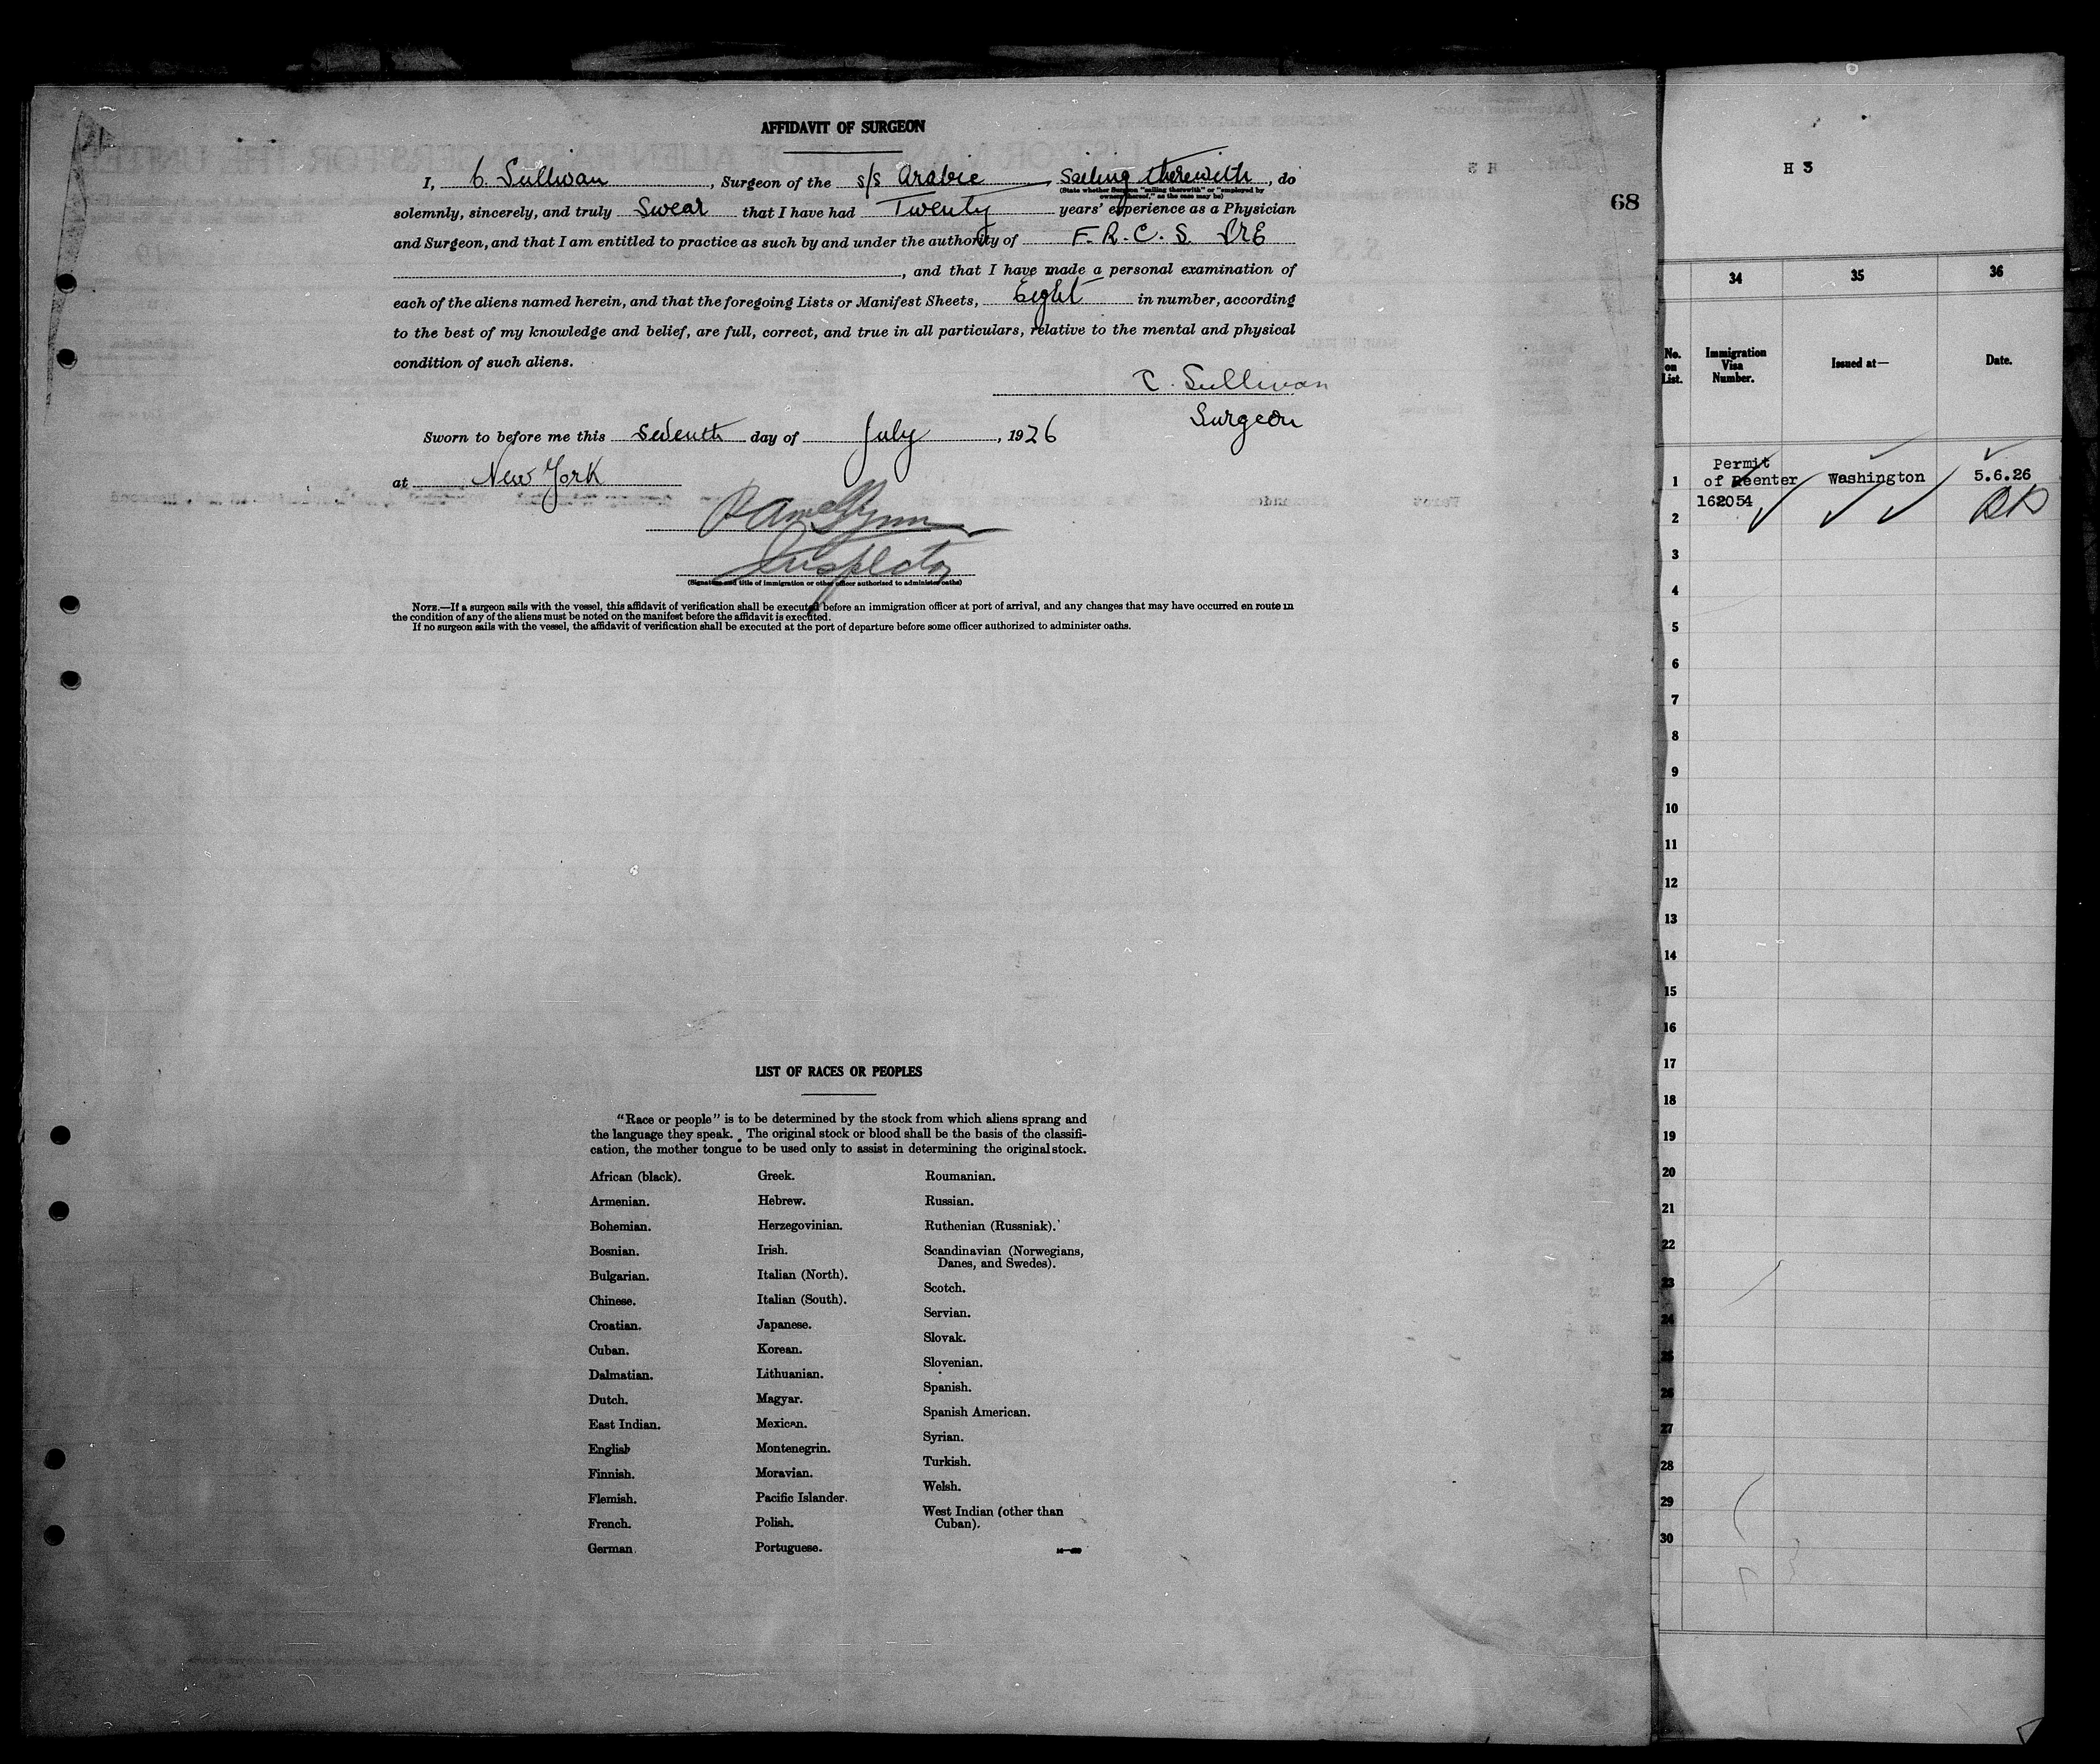 AFFIDAVIT OF SURGEON
I, C. Sullivan, Surgeon of the s/s Arabic Sailing therewith, do
(State whether Surgeon "sailing therewith" or "employed by
owners thereof," as the case may be)
solemnly, sincerely, and truly Swear that I have had Twenty years' experience as a Physician
and Surgeon, and that I am entitled to practice as such by and under the authority of F. R. C. S. IRE
, and that I have made a personal examination of
each of the aliens named herein, and that the foregoing Lists or Manifest Sheets, Eight in number, according
to the best of my knowledge and belief, are full, correct, and true in all particulars, relative to the mental and physical
condition of such aliens.
C. Sullivan
Surgeon
Sworn to before me this seventh day of July, 1926
at New York
Inspector
(Signature and title of immigration or other officer authorized to administer oaths)
NOTE.—If a surgeon sails with the vessel, this affidavit of verification shall be executed before an immigration officer at port of arrival, and any changes that may have occurred en route in
the condition of any of the aliens must be noted on the manifest before the affidavit is executed.
If no surgeon sails with the vessel, the affidavit of verification shall be executed at the port of departure before some officer authorized to administer oaths.
LIST OF RACES OR PEOPLES
"Race or people" is to be determined by the stock from which aliens sprang and
the language they speak. The original stock or blood shall be the basis of the classifi-
cation, the mother tongue to be used only to assist in determining the original stock.
African (black).
Armenian.
Bohemian.
Bosnian.
Bulgarian.
Chinese.
Croatian.
Cuban.
Dalmatian.
Dutch.
East Indian.
English
Finnish.
Flemish.
French.
German.
Greek.
Hebrew.
Herzegovinian.
Irish.
Italian (North).
Italian (South).
Japanese.
Korean.
Lithuanian.
Magyar.
Mexican.
Montenegrin.
Moravian.
Pacific Islander.
Polish.
Portuguese.
Roumanian.
Russian.
Ruthenian (Russniak).
Scandinavian (Norwegians,
Danes, and Swedes).
Scotch.
Servian.
Slovak.
Slovenian.
Spanish.
Spanish American.
Syrian.
Turkish.
Welsh.
West Indian (other than
Cuban).
68
H 3
34 35 36
No. on List. Immigration Visa Number. Issued at— Date.
Permit
1 of Reenter Washington 5.6.26
2
3
4
5
6
7
8
9
10
11
12
13
14
15
16
17
18
19
20
21
22
23
24
25
26
27
28
29
30